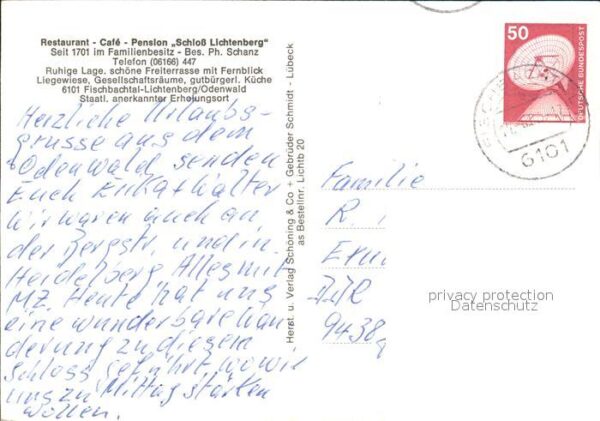 Restaurant - Café - Pension „Schloß Lichtenberg“
Seit 1701 im Familienbesitz - Bes. Ph. Schanz
Telefon (06166) 447
Ruhige Lage. schöne Freiterrasse mit Fernblick
Liegewiese, Gesellschaftsräume, gutbürgerl. Küche
6101 Fischbachtal-Lichtenberg/Odenwald
Staatl. anerkannter Erholungsort
Herzliche Urlaubs-
grüsse aus dem
Odenwald senden
Euch Erika + Walter
Wir waren auch an
der Bergstr. und in
Heidelberg Alles mit
MZ. Heute hat uns
eine wunderbare Wan
derung zu diesem
Schloss geführt, wo wir
uns zu Mittag stärken
wollen.
Herst. u. Verlag Schöning & Co + Gebrüder Schmidt - Lübeck
as Bestellnr. Lichtb 20
50
DEUTSCHE BUNDESPOST
6101
Familie
R.
9438
privacy protection
Datenschutz